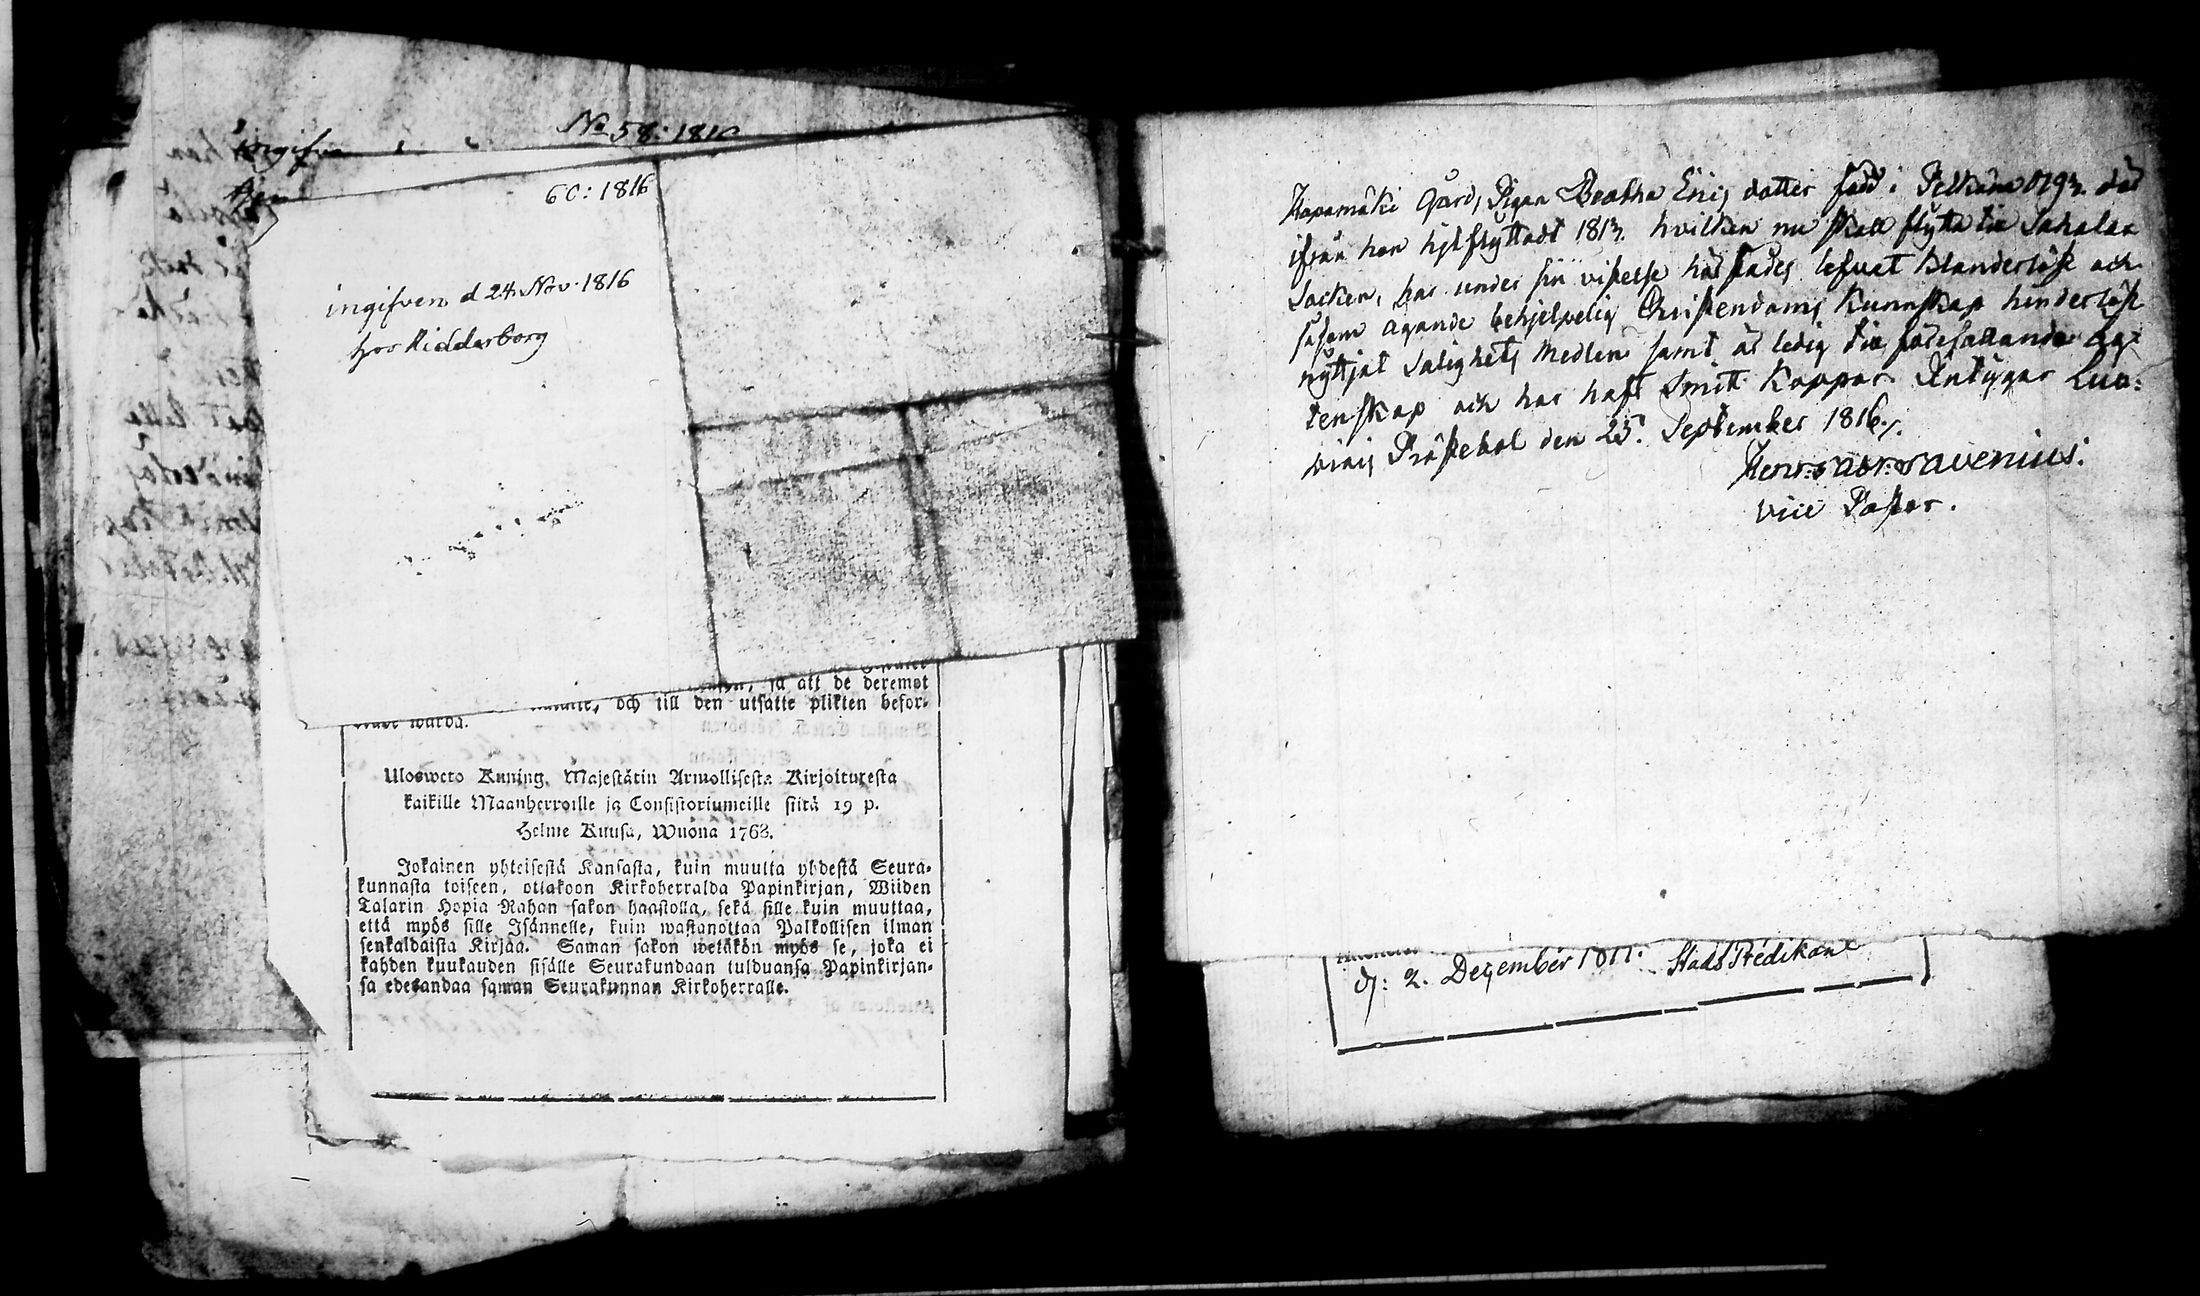 No 58: 1816
ingifven
60: 1816
ingifven d 24 Nov. 1816
hos Ridderborg
så att de deremot
och till den utsatte plikten befor-
warda.
Ulosweto Kuning. Majestätin Armollisesta Kirjoituresta
kaikille Maanherroille ja Consistoriumeille siitä 19 p.
Helme Kuusa, Wuona 1763.
Jokainen yhteisestä Kansasta, kuin muutta yhdestä Seura-
kunnasta toiseen, ottakoon Kirkoherralda Papinkirjan, Wiiden
Talarin Hopia Rahan sakon haastolla, sekä sille kuin muuttaa,
että myös sille Isännelle, kuin wastanottaa Palkollisen ilman
senkaldaista Kirjaa. Saman sakon wetäkön myös se, joka ei
kahden kuukauden sisälle Seurakundaan tulduansa Papinkirjan-
sa edesandaa saman Seurakunnan Kirkoherralle.
Hapamäki Gård, Pigan Beatha Erics dotter född i Pelkäne 1793. där
ifrån hon hitflyttadt 1813. hvilken nu skall flytta till Sahalax
Socken, har under sin vistelse härstädes lefvat klanderlöst och
såsom ägande behjelpelig Christendoms Kunnskap hinderlöst
nyttjat Salighets Medlen samt är ledig till förefallande äg-
tenskap och har haft Smitt Koppor. Intygar Luo-
piois Prästebol den 25. September 1816.
Henr: Gabr: Lavenius.
vice Pastor.
d: 2. December 1811. Stads Predikant